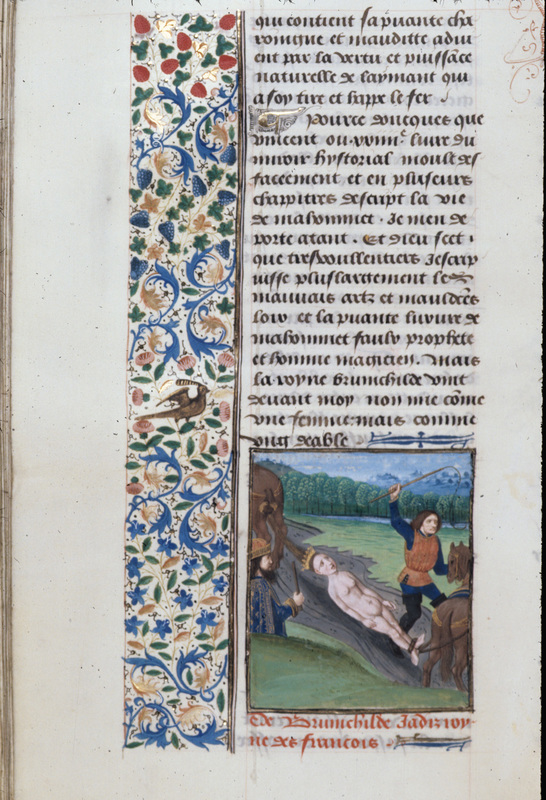 qui contient sa puante cha
rongne et mauditte adui
ent par la vertu et puissāce
naturelle de laymant qui
a soy tire et happe le fer .
Pource doncques que
vincent ou .xxiiii.e liure du
miroir hystorial moult des
facéement et en pluseurs
chappitres descript la vie
de mahommet . Je men de
porte atant . Et dieu scet .
que tresvoullentiers Jescrip
uisse pluslargement les
mauuais artz et mauldctēs
loix et la puante luxure de
mahommet faulx prophete
et homme magicien . Mais
la royne Brunichilde vint
deuant moy non mie cōme
vne femme : mais comme
vng deable
De Brunichilde Jadiz roy-
ne des francois .